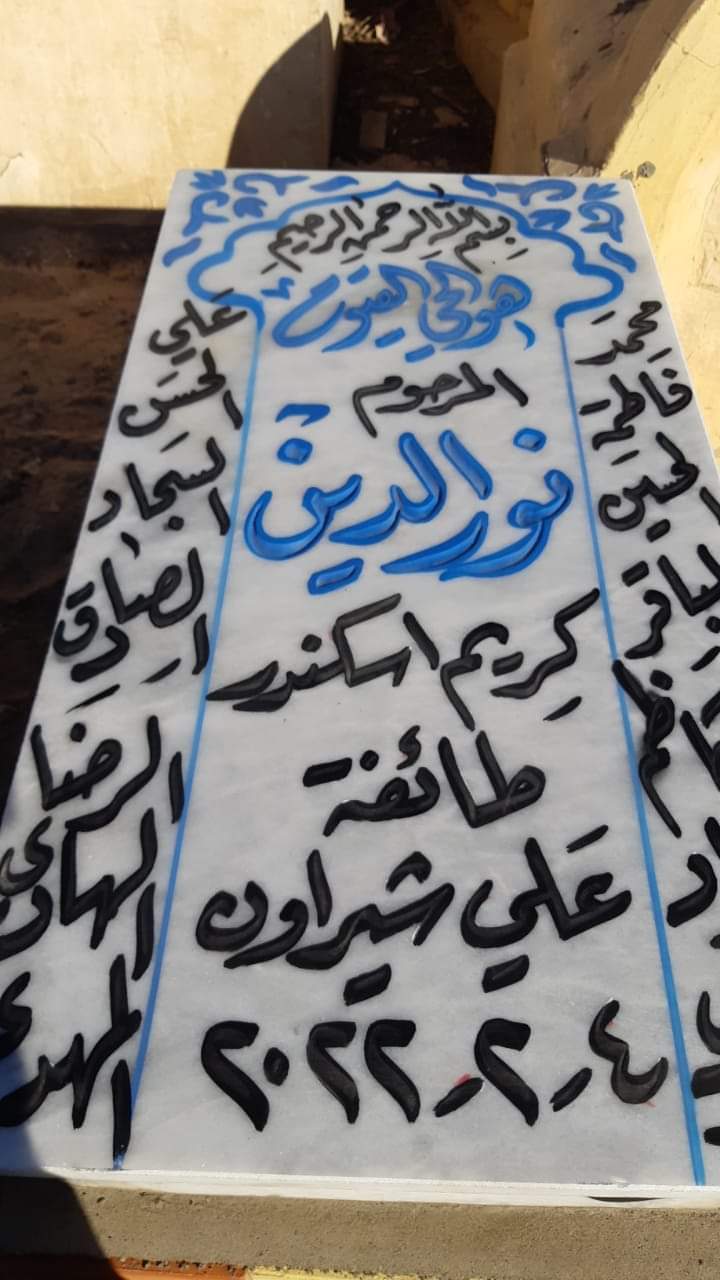 بسم الله الرحمن الرحيم
هو الحي القيوم
المرحوم
نور الدين
كريم اسكندر
طائفة
علي شيراون
٤-٢-٢٠٢٢
محمد
فاطمة
الحسين
الباقر
علي
الحسن
السجاد
الصادق
الرضا
الهادي
المهدي